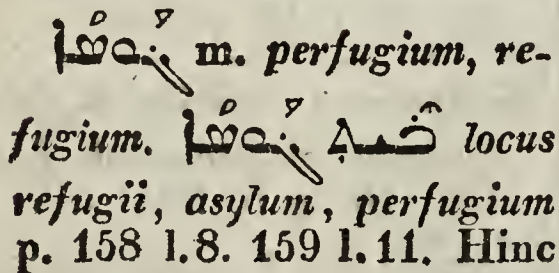 ܓܰܘܣܳܐ m. perfugium, re-
fugium. ܒܶܝܬ ܓܰܘܣܳܐ locus
refugii, asylum, perfugium
p. 158 l. 8. 159 l. 11. Hinc